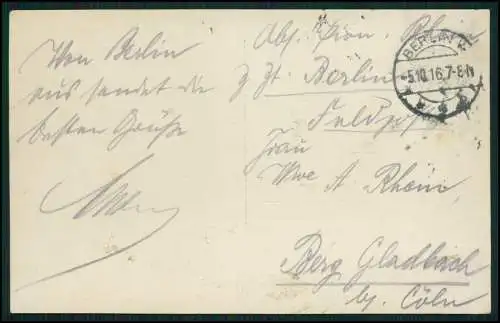 Von Berlin
aus sendet die
besten Grüße
Abs. Pion. Rhein
z Zt. Berlin
Feldpost
Frau
Wwe A. Rhein,
Berg Gladbach
bz. Cöln
BERLIN
-5.10.16.7-8N